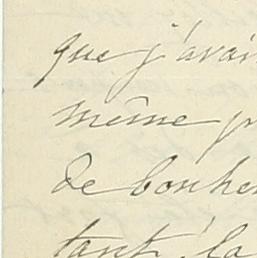 que j'avai
même p
de bonhe
tant, la